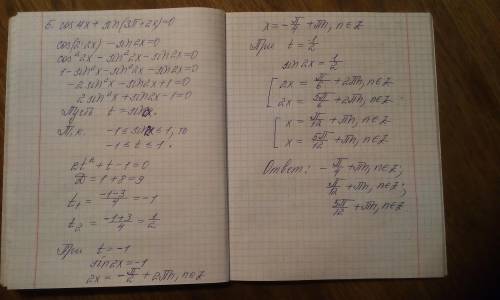 6. cos4x + sin(3π+2x)=0
cos(2·2x) - sin2x=0
cos²2x - sin²2x - sin2x=0
1-sin²x-sin²2x-sin2x=0
-2sin²x-sin2x+1=0
2sin²x+sin2x-1=0
Пусть t = sin2x.
Т.к. -1≤sin2x≤1, то
-1≤t≤1.
2t²+t-1=0
D=1+8=9
t₁ = (-1-3)/4 = -1
t₂ = (-1+3)/4 = 1/2
При t=-1
sin2x=-1
2x = -π/2 + 2πn, n∈Z
x = -π/4 + πn, n∈Z
При t = 1/2
sin2x = 1/2
[ 2x = π/6 + 2πn, n∈Z
2x = 5π/6 + 2πn, n∈Z
[ x = π/12 + πn, n∈Z
x = 5π/12 + πn, n∈Z
Ответ: -π/4 + πn, n∈Z;
π/12 + πn, n∈Z;
5π/12 + πn, n∈Z